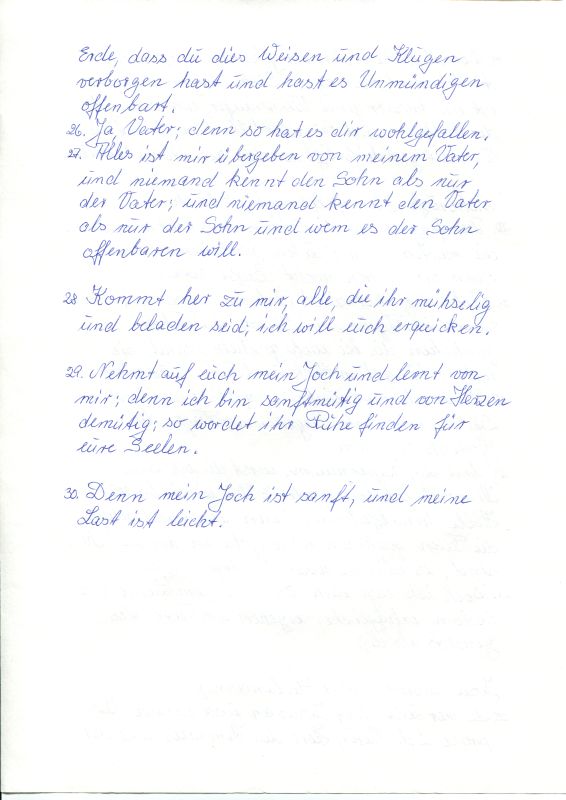 Erde, dass du dies Weisen und Klugen
verborgen hast und hast es Unmündigen
offenbart.
26. Ja, Vater; denn so hat es dir wohlgefallen.
27. Alles ist mir übergeben von meinem Vater,
und niemand kennt den Sohn als nur
der Vater; und niemand kennt den Vater
als nur der Sohn und wem es der Sohn
offenbaren will.
28 Kommt her zu mir, alle, die ihr mühselig
und beladen seid; ich will euch erquicken.
29. Nehmt auf euch mein Joch und lernt von
mir; denn ich bin sanftmütig und von Herzen
demütig; so werdet ihr Ruhe finden für
eure Seelen.
30. Denn mein Joch ist sanft, und meine
Last ist leicht.